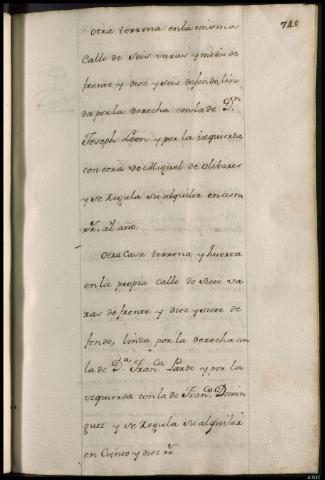 748
Otra terrena en la misma
Calle de seis varas y media de
frente y diez y seis de fondo, lin
da por la derecha con la de Dn
Joseph Leon y por la izquierda
con otra de Miguel de Olibares
y se Regula su alquiler en
rr. al año.
Otra Casa terrena, y huerta
en la propia calle de siete va
ras de frente y diez y siete de
fondo, linda por la derecha con
la de Da. Franca. Pardo y por la
izquierda con la de Franco. Domin
guez y se Regula su alquiler
en Ciento y diez rr.